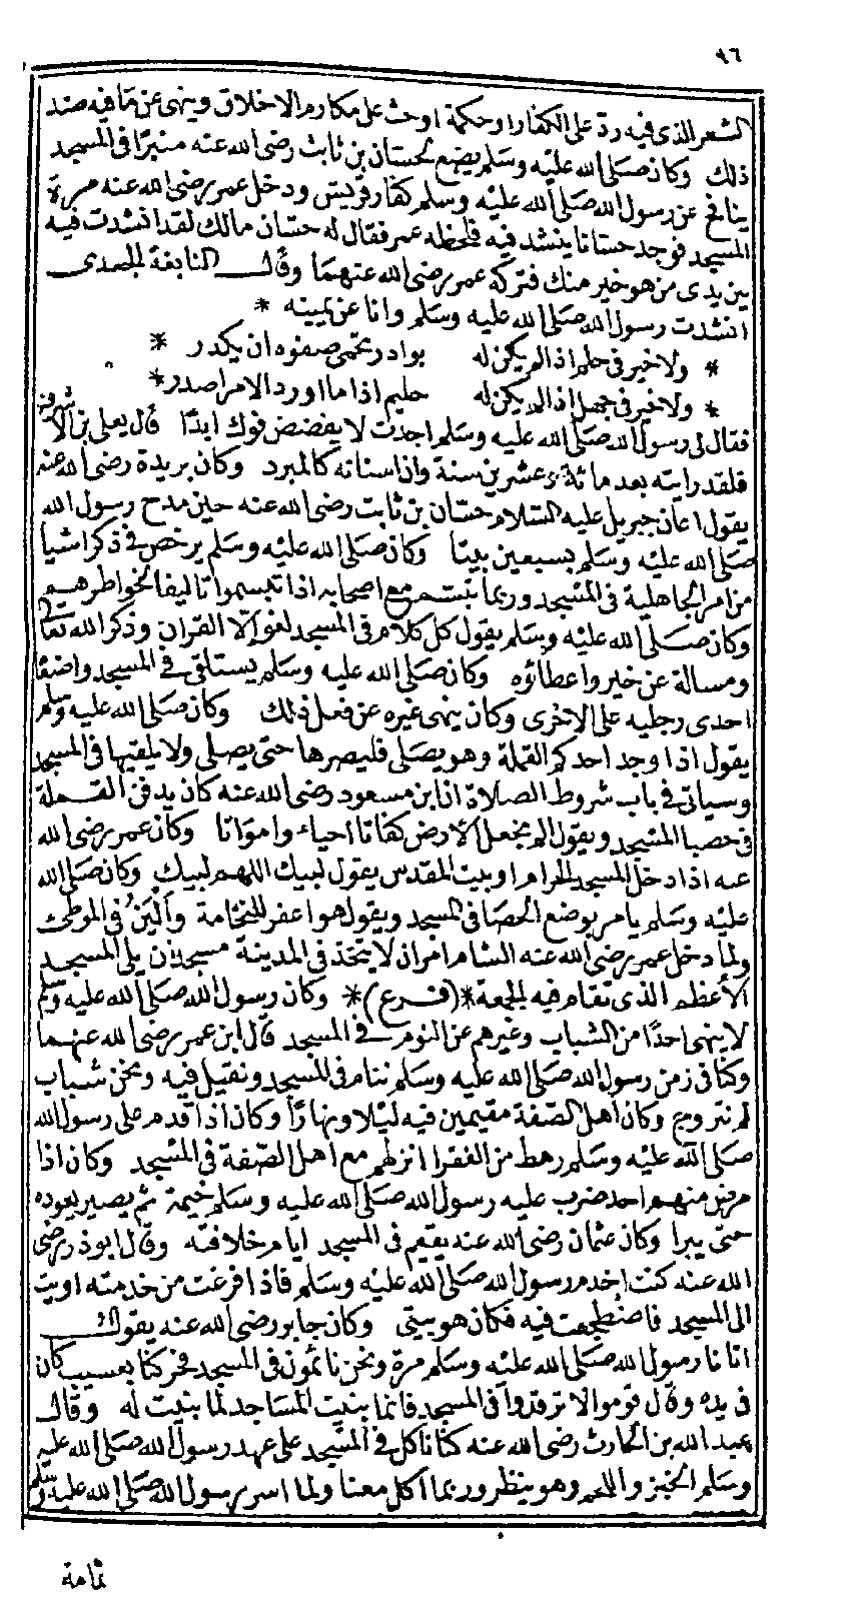 ٩٦
الشعر الذى فيه رد على الكفار او حكمة او حث على مكارم الاخلاق وينهى عن مافيه ضد
ذلك وكان صلى الله عليه وسلم يضع لحسان بن ثابت رضى الله عنه منبرا فى المسجد
ينافح عن رسول الله صلى الله عليه وسلم كفار قريش ودخل عمر رضى الله عنه مرة
المسجد فوجد حسانا ينشد فيه فلحظه عمر فقال له حسان مالك لقد انشدت فيه
بين يدى من هو خير منك فتركه عمر رضى الله عنهما وقال النابغة الجعدى
انشدت رسول الله صلى الله عليه وسلم وانا عن يمينه *
* ولا خير فى حلم اذا لم يكن له بوادر تحمى صفوه ان يكدر *
* ولا خير فى جهل اذا لم يكن له حليم اذا ما اورد الامر اصدر *
فقال لى رسول الله صلى الله عليه وسلم اجدت لا يفضض فوك ابدا قال يعلى بن الاشرف
فلقد رايته بعد مائة وعشرين سنة وان اسنانه كالمبرد وكان بريدة رضى الله عنه
يقول اعان جبريل عليه السلام حسان بن ثابت رضى الله عنه حين مدح رسول الله
صلى الله عليه وسلم بسبعين بيتا وكان صلى الله عليه وسلم يرخص فى ذكر اشيا
من امر الجاهلية فى المسجد وربما تبسم مع اصحابه اذا تبسموا تاليفا لخواطرهم
وكان صلى الله عليه وسلم يقول كل كلام فى المسجد لغو الا القران وذكر الله تعا
ومسالة عن خير واعطاؤه وكان صلى الله عليه وسلم يستلقى فى المسجد واضعا
احدى رجليه على الاخرى وكان ينهى غيره عن فعل ذلك وكان صلى الله عليه وسلم
يقول اذا وجد احدكم القملة وهو يصلى فليصرها حتى يصلى ولا يلقيها فى المسجد
وسياتى فى باب شروط الصلاة ان ابن مسعود رضى الله عنه كان يدفن القملة
فى حصبا المسجد ويقول الم نجعل الارض كفاتا احياء وامواتا وكان عمر رضى الله
عنه اذا دخل المسجد الحرام او بيت المقدس يقول لبيك اللهم لبيك وكان صلى الله
عليه وسلم يامر بوضع الحصا فى المسجد ويقول هو اغفر للنخامة وألين فى الموطئ
ولما دخل عمر رضى الله عنه الشام امر ان لا يتخذ فى المدينة مسجدان يلى المسجد
الأعظم الذى تقام فيه الجمعة *(فرع)* وكان رسول الله صلى الله عليه وسلم
لا ينهى احدا من الشباب وغيرهم عن النوم فى المسجد قال ابن عمر رضى الله عنهما
وكنا فى زمن رسول الله صلى الله عليه وسلم ننام فى المسجد ونقيل فيه ونحن شباب
لم نتزوج وكان أهل الصفة مقيمين فيه ليلا ونهارا وكان اذا قدم على رسول الله
صلى الله عليه وسلم رهط من الفقرا انزلهم مع اهل الصفة فى المسجد وكان اذا
مرض منهم احد ضرب عليه رسول الله صلى الله عليه وسلم خيمة ثم يصير يعوده
حتى يبرا وكان عثمان رضى الله عنه يقيم فى المسجد ايام خلافته وقال ابو ذر رضى
الله عنه كنت اخدم رسول الله صلى الله عليه وسلم فاذا فرغت من خدمته اويت
الى المسجد فاضطجعت فيه فكان هو بيتى وكان جابر رضى الله عنه يقول
اتانا رسول الله صلى الله عليه وسلم مرة ونحن نائمون فى المسجد فحركنا بعسيب كان
فى يده وقال قوموا لا ترقدوا فى المسجد فانما بنيت المساجد لما بنيت له وقال
عبد الله بن الحارث رضى الله عنه كنا نأكل فى المسجد على عهد رسول الله صلى الله عليه
وسلم الخبز واللحم وهو ينظر وربما أكل معنا ولما اسر رسول الله صلى الله عليه وسلم
ثمامة